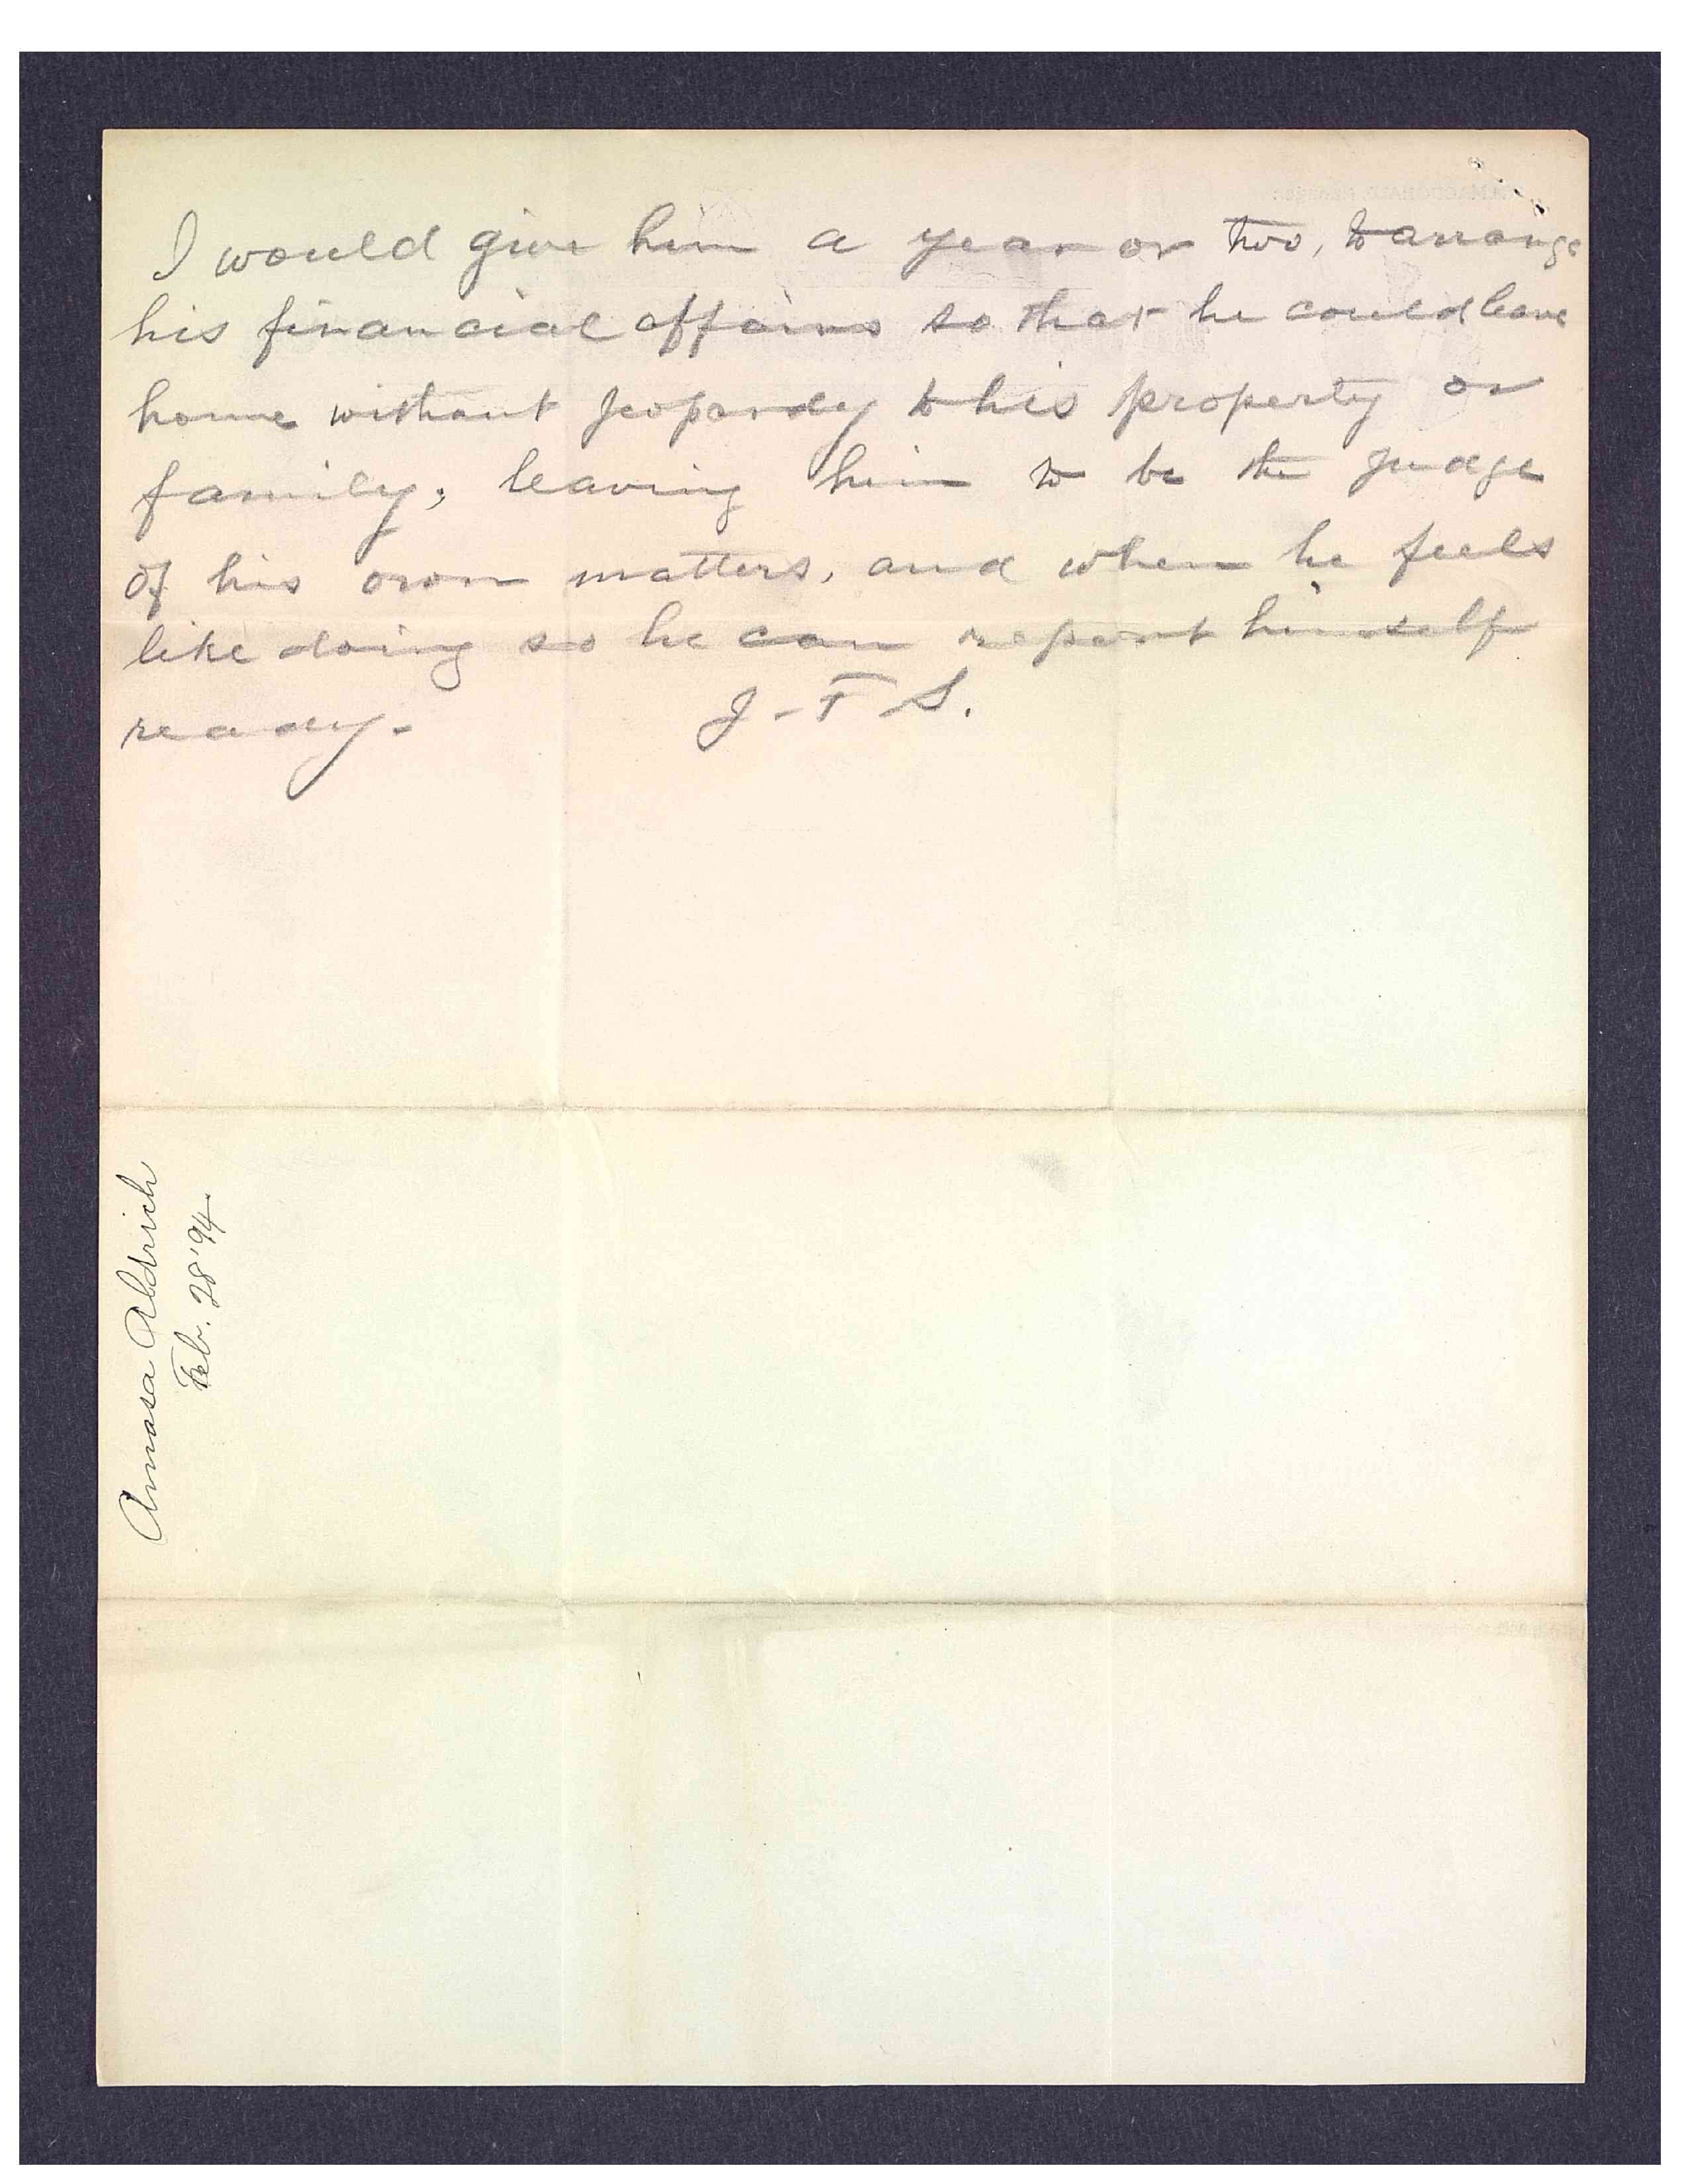 I would give him a year or two, to arrange
his financial affairs so that he could leave
home without jeopardy to his property or
family, leaving him to be the judge
of his own matters, and when he feels
like doing so he can report himself
ready.
J-T S.
Amasa Aldrich
Feb. 28 '94.